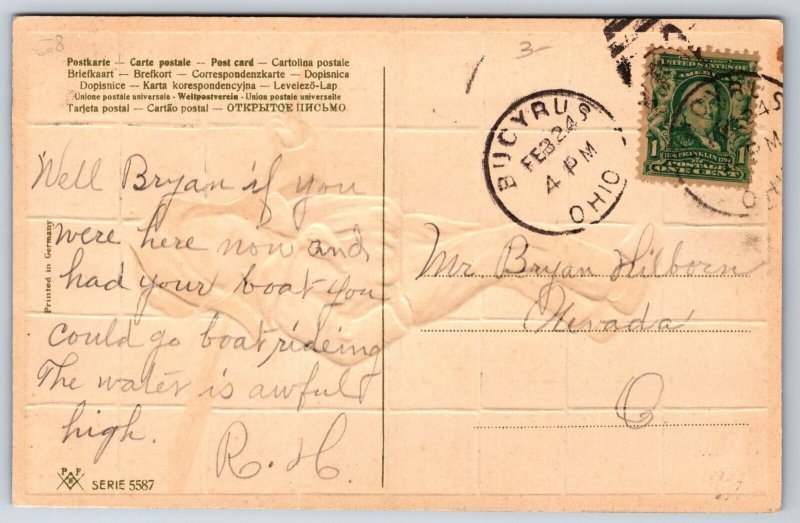 Postkarte — Carte postale — Post card — Cartolina postale
Briefkaart — Brefkort — Correspondenzkarte — Dopisnica
Dopisnice — Karta korespondencyjna — Levelező-Lap
Unione postale universale - Weltpostverein - Union postale universelle
Tarjeta postal — Cartão postal — ОТКРЫТОЕ ПИСЬМО.
3-
BUCYRUS
FEB 24
4 PM
OHIO
UNITED STATES OF
AMERICA
FRANKLIN
1 POSTAGE 1
ONE CENT
Well Bryan if you
were here now and
had your boat you
could go boat rideing
The water is awful
high.
R. H.
Mr Bryan Hilborn
Nevada
O
Printed in Germany
P F B
SERIE 5587